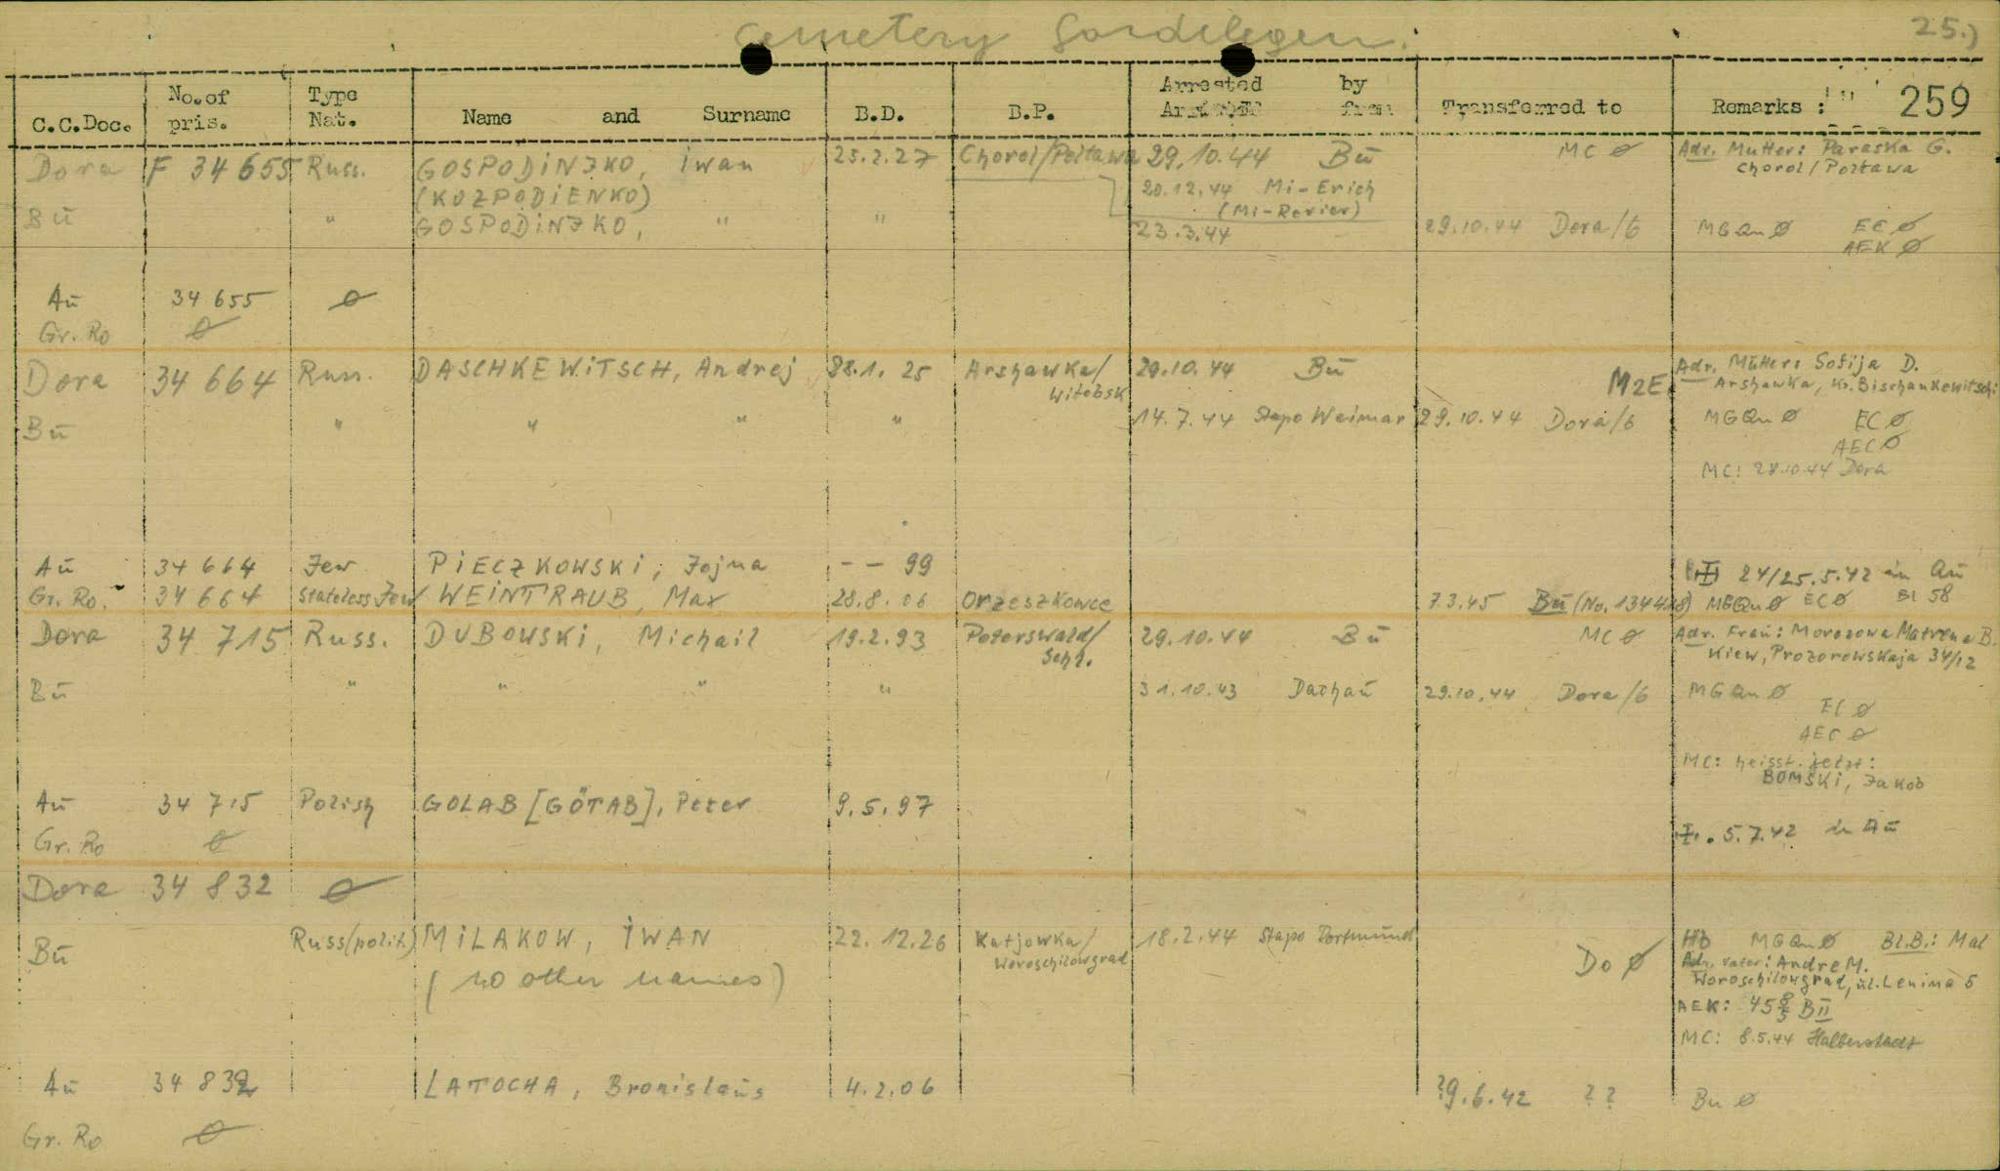 Cemetery Gardelegen. 25.)
C.C.Doc. No.of pris. Type Nat. Name and Surname B.D. B.P. Arrested by Transferred to Remarks : 259
Dora F 34 655 Russ. GOSPODINZKO, Iwan 25.2.27 Chorol/Poltawa 29.10.44 Bu MC ø Adr. Mutter: Paraska G.
Chorol/Poltawa
(KOZPODIENKO) 20.12.44 Mi-Erich
(Mi-Revier)
Bu " GOSPODINZKO, " " 23.3.44 29.10.44 Dora/6 MGQu ø EC ø
AEK ø
Au 34 655 ø
Gr. Ro ø
Dora 34 664 Russ. DASCHKEWITSCH, Andrej 28.1.25 Arshawka/ 29.10.44 Bu M2E Adr. Mutter: Sofija D.
Witebsk Arshawka, Kr. Bischankowitschi
Bu " " " " 14.7.44 Stapo Weimar 29.10.44 Dora/6 MGQu ø EC ø
AEC ø
MC: 28.10.44 Dora
Au 34 664 Jew PIECZKOWSKI, Jojna - - 99 24/25.5.42 in Au
Gr. Ro. 34 664 Stateless Jew WEINTRAUB, Max 28.8.06 Orzeszkowce 7.3.45 Bu (No. 134428) MGQu ø EC ø Bl 58
Dora 34 715 Russ. DUBOWSKI, Michail 19.2.93 Peterswald/ 29.10.44 Bu MC ø Adr. Frau: Morozowa Matrena B.
Schl. Kiew, Prozorowskaja 34/12
Bu " " " " 31.10.43 Dachau 29.10.44 Dora/6 MGQu ø
EC ø
AEC ø
MC: heisst jetzt:
BOMSKI, Jakob
Au 34 715 Polish GOLAB [GÖTAB], Peter 9.5.97
Gr. Ro ø 5.7.42 in Au
Dora 34 832 ø
Bu Russ(polit) MILAKOW, IWAN 22.12.26 Katjowka/ 18.2.44 Stapo Dortmund Do ø Hb MGQu ø Bl.B.: Mal
(no other names) Woroschilowgrad Adr. Vater: Andre M.
Woroschilowgrad, ul. Lenina 5
AEK: 45 8/3 BII
MC: 8.5.44 Halberstadt
Au 34 832 LATOCHA, Bronislaus 4.2.06 ?9.6.42 ?? Bu ø
Gr. Ro ø